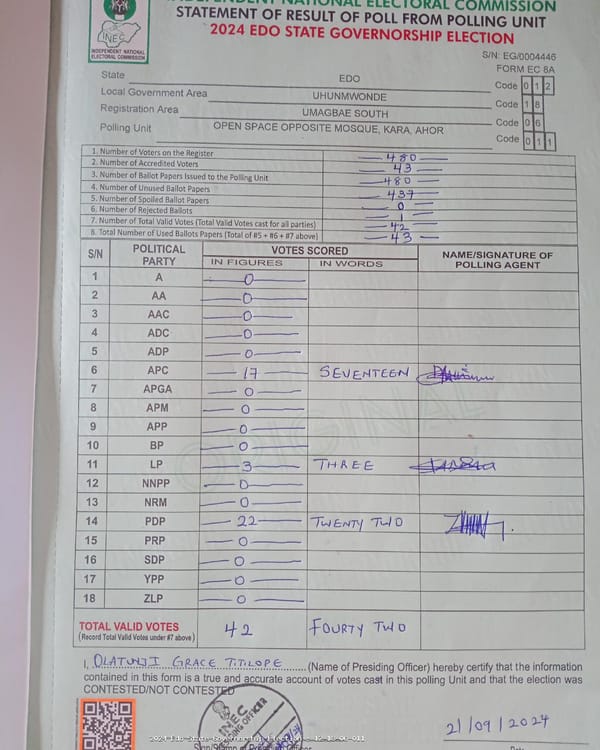 INDEPENDENT NATIONAL ELECTORAL COMMISSION
STATEMENT OF RESULT OF POLL FROM POLLING UNIT
2024 EDO STATE GOVERNORSHIP ELECTION
INEC
INDEPENDENT NATIONAL
ELECTORAL COMMISSION
S/N: EG/0004446
FORM EC 8A
State EDO Code 0 1 2
Local Government Area UHUNMWONDE Code 1 8
Registration Area UMAGBAE SOUTH Code 0 6
Polling Unit OPEN SPACE OPPOSITE MOSQUE, KARA, AHOR Code 0 1 1
1. Number of Voters on the Register 480
2. Number of Accredited Voters 43
3. Number of Ballot Papers Issued to the Polling Unit 480
4. Number of Unused Ballot Papers 437
5. Number of Spoiled Ballot Papers 0
6. Number of Rejected Ballots 1
7. Number of Total Valid Votes (Total Valid Votes cast for all parties) 42
8. Total Number of Used Ballots Papers (Total of #5 + #6 + #7 above) 43
S/N POLITICAL PARTY VOTES SCORED NAME/SIGNATURE OF POLLING AGENT
IN FIGURES IN WORDS
1 A 0
2 AA 0
3 AAC 0
4 ADC 0
5 ADP 0
6 APC 17 SEVENTEEN
7 APGA 0
8 APM 0
9 APP 0
10 BP 0
11 LP 3 THREE
12 NNPP 0
13 NRM 0
14 PDP 22 TWENTY TWO
15 PRP 0
16 SDP 0
17 YPP 0
18 ZLP 0
ORIGINAL
TOTAL VALID VOTES 42 FOURTY TWO
(Record Total Valid Votes under #7 above)
I, OLATUNJI GRACE TITILOPE (Name of Presiding Officer) hereby certify that the information
contained in this form is a true and accurate account of votes cast in this polling Unit and that the election was
CONTESTED/NOT CONTESTED
INEC
21/09/2024